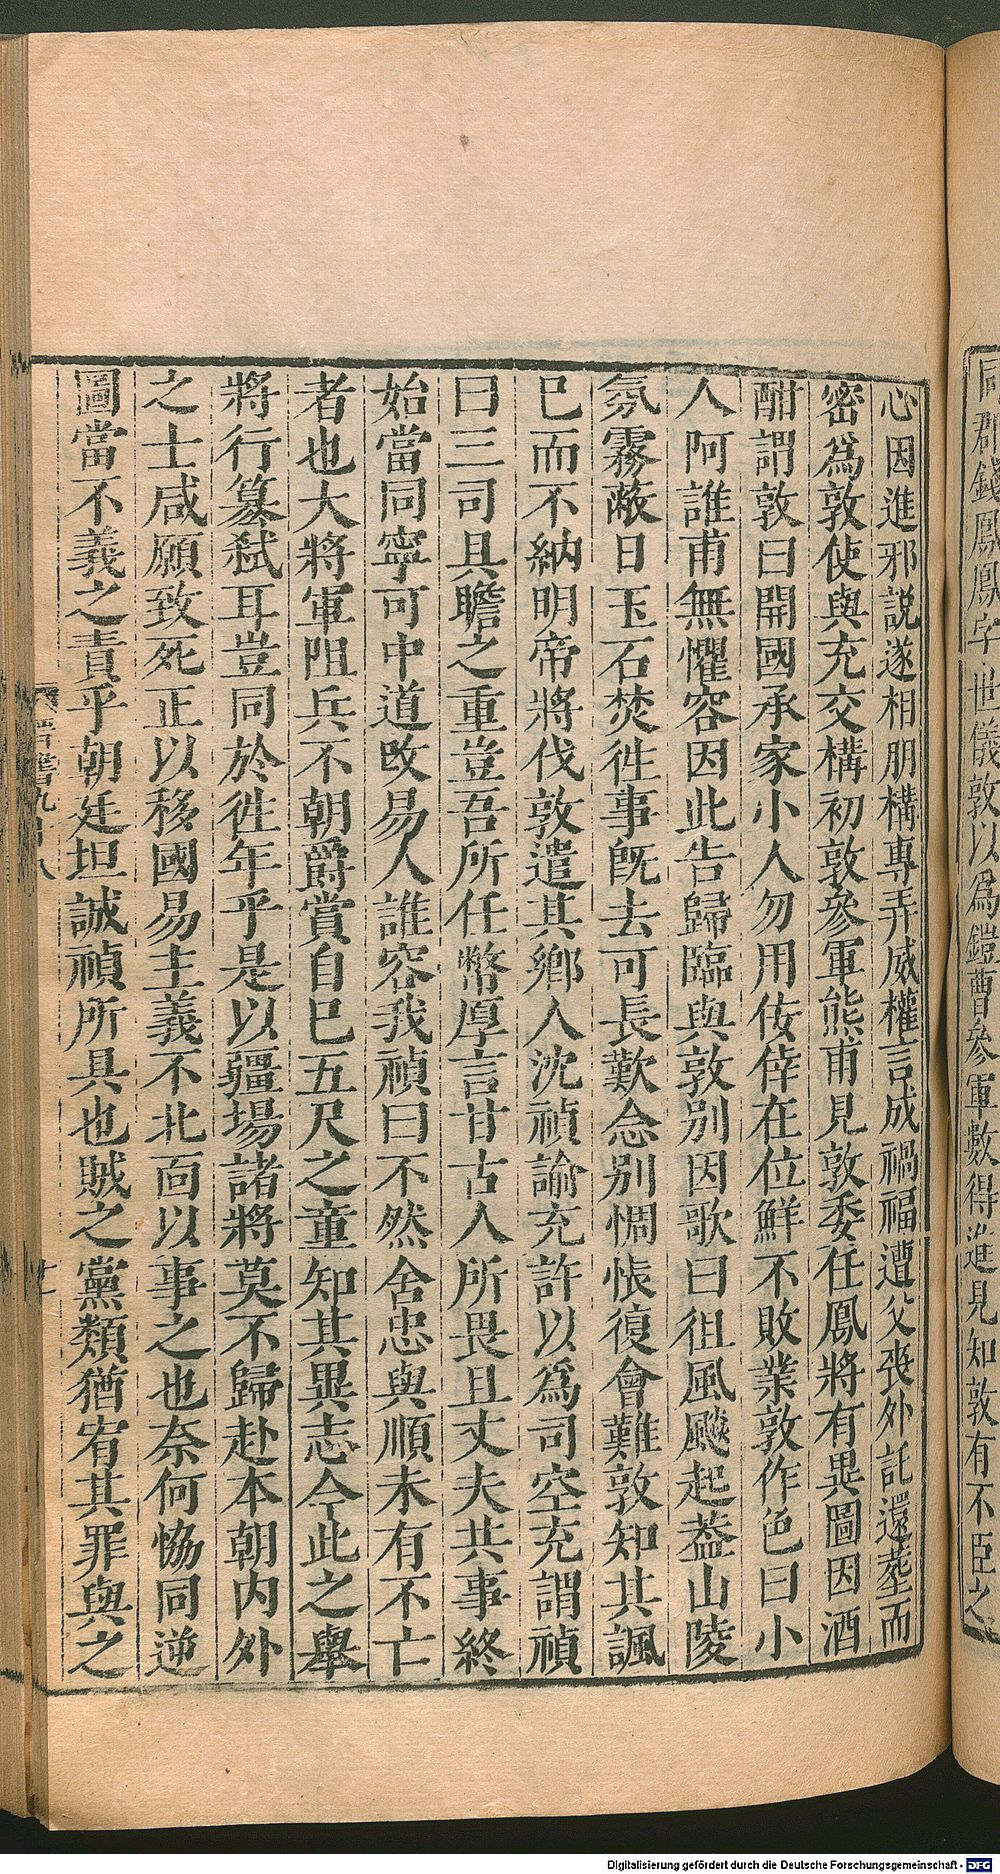 同郡錢鳳鳳字世儀敦以爲鎧曹參軍數得進見知敦有不臣之
心因進邪説遂相朋構專弄威權言成禍福遭父喪外託還塟而
密爲敦使與充交構初敦參軍熊甫見敦委任鳳將有異圖因酒
酣謂敦曰開國承家小人勿用佞倖在位鮮不敗業敦作色曰小
人阿誰甫無懼容因此告歸臨與敦別因歌曰徂風飈起葢山陵
氛霧蔽日玉石焚徃事旣去可長歎念別惆悵復會難敦知其諷
巳而不納明帝將伐敦遣其鄉人沈禎諭充許以爲司空充謂禎
曰三司具瞻之重豈吾所任幣厚言甘古人所畏且丈夫共事終
始當同寧可中道改易人誰容我禎曰不然舍忠與順未有不亡
者也大將軍阻兵不朝爵賞自巳五尺之童知其異志今此之舉
將行篡弑耳豈同於徃年乎是以疆場諸將莫不歸赴本朝内外
之士咸願致死正以移國易主義不北面以事之也奈何恊同逆
圖當不義之責乎朝廷坦誠禎所具也賊之黨類猶宥其罪與之
Digitalisierung gefördert durch die Deutsche Forschungsgemeinschaft - DFG